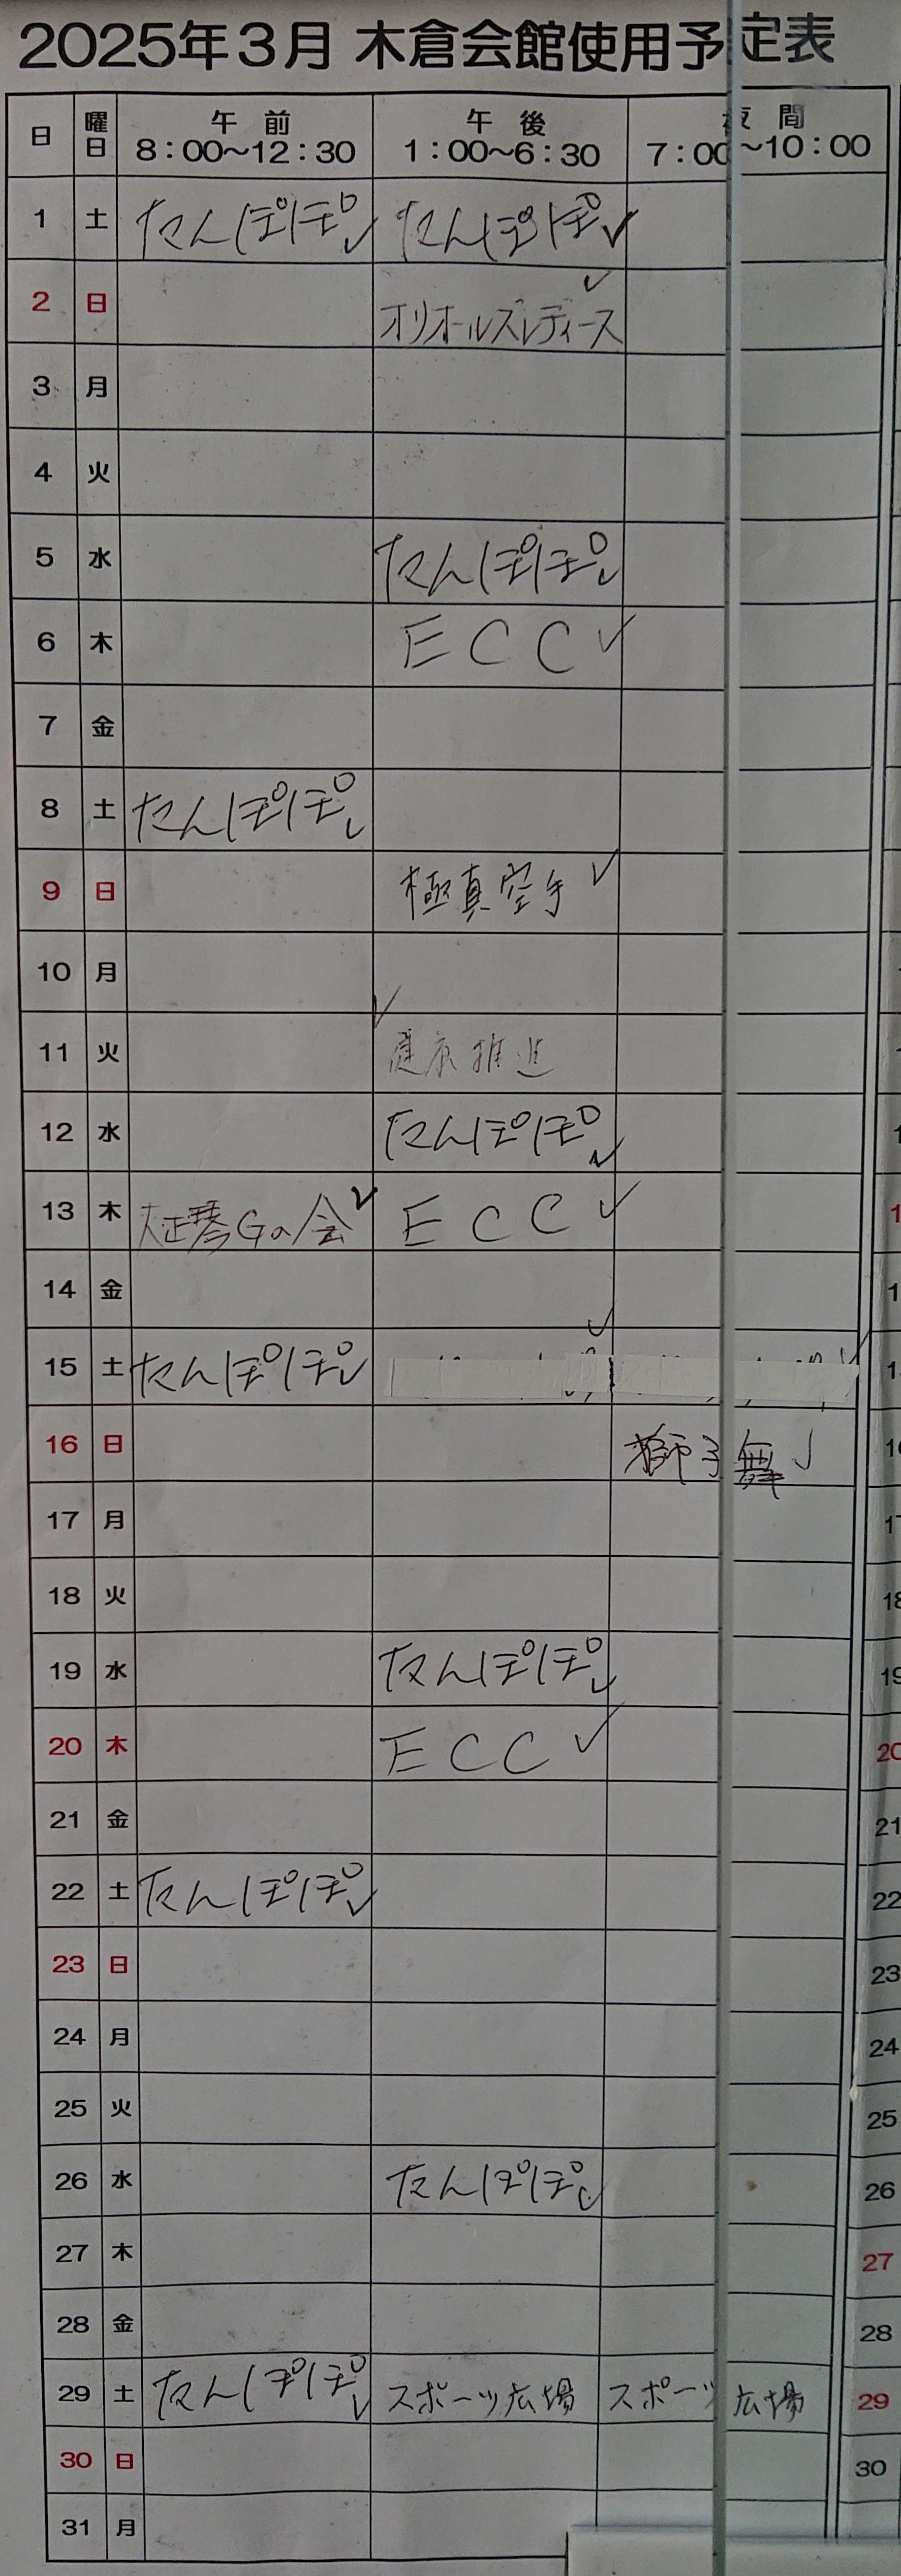 2025年3月 木倉会館使用予定表
日 曜日 午前 8:00～12:30 午後 1:00～6:30 夜間 7:00～10:00
1 土 たんぽぽ たんぽぽ
2 日 オリオールズレディース
3 月
4 火
5 水 たんぽぽ
6 木 ECC
7 金
8 土 たんぽぽ
9 日 極真空手
10 月
11 火 健康推進
12 水 たんぽぽ
13 木 大正琴Gの会 ECC
14 金
15 土 たんぽぽ
16 日 獅子舞
17 月
18 火
19 水 たんぽぽ
20 木 ECC
21 金
22 土 たんぽぽ
23 日
24 月
25 火
26 水 たんぽぽ
27 木
28 金
29 土 たんぽぽ スポーツ広場 スポーツ広場
30 日
31 月
20
21
22
23
24
25
26
27
28
29
30